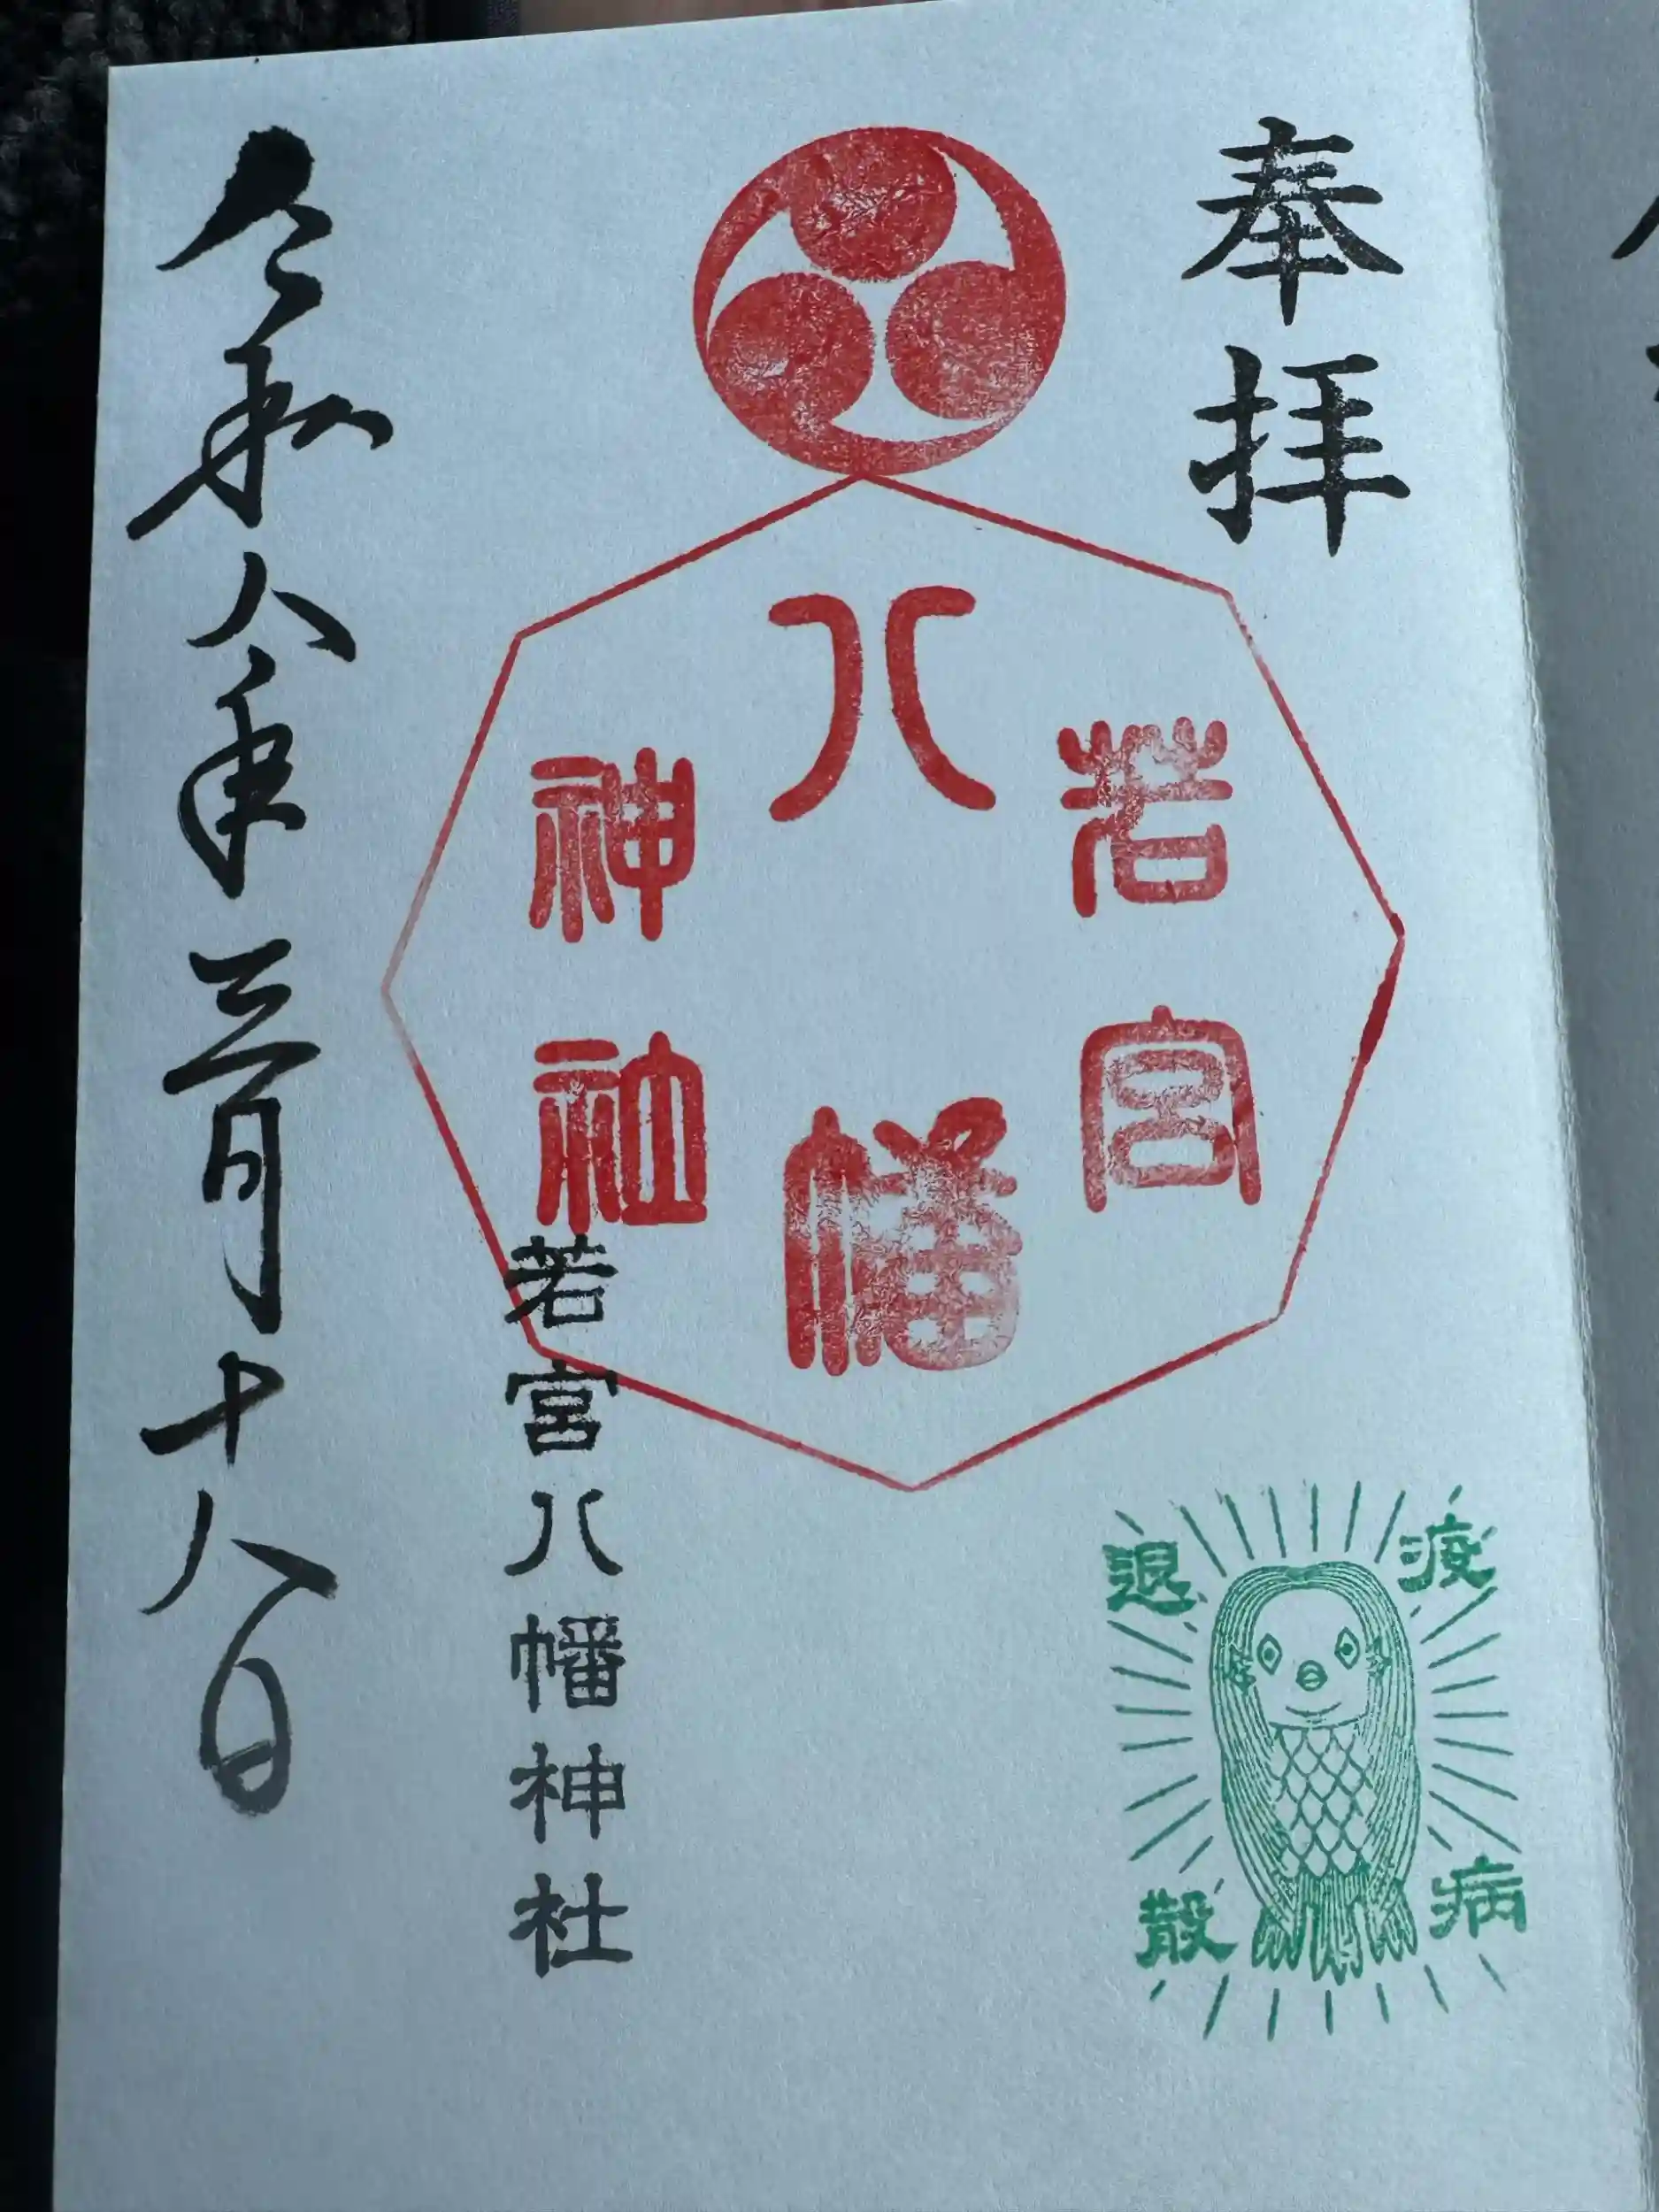 奉拝
若宮
八幡
神社
疫病
退散
若宮八幡神社
令和八年三月十八日